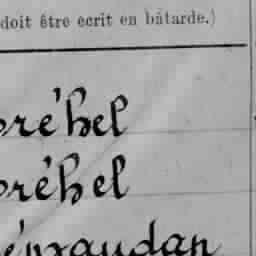 doit être ecrit en bâtarde.)
oréhel
oréhel
émaudan